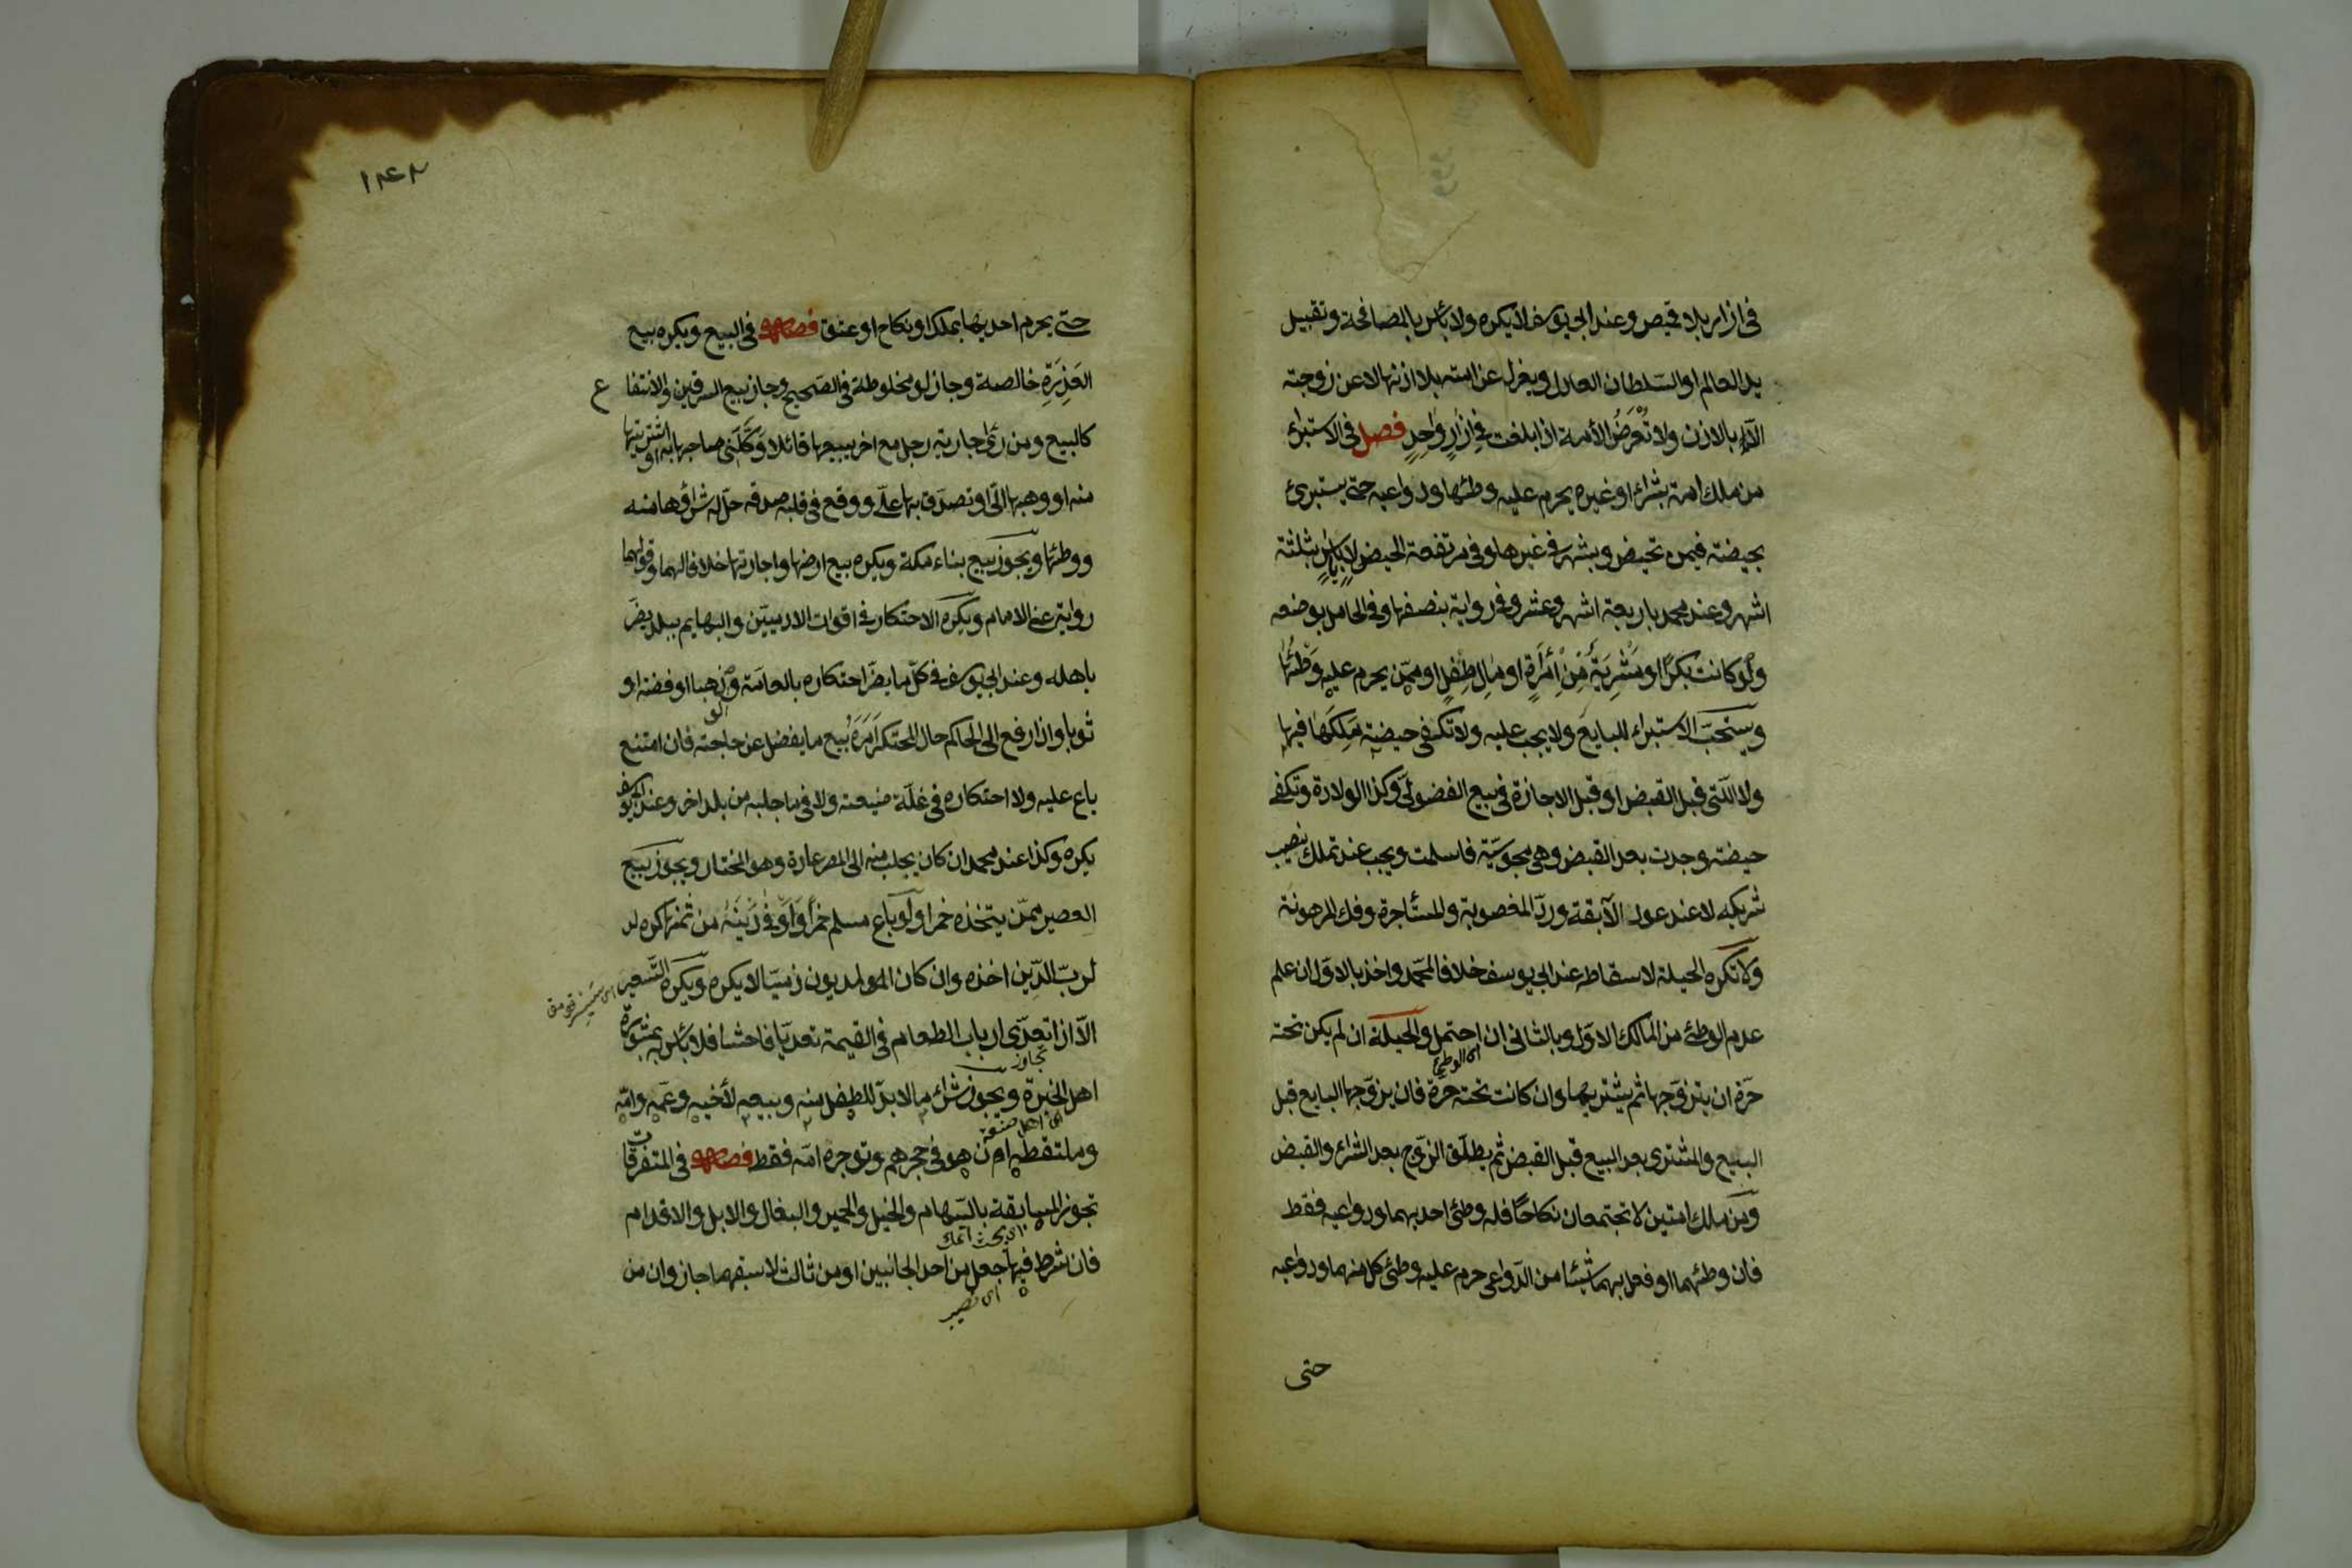 فى ازار بلا قميص وعند ابى يوسف لا يكره ولا بأس بالمصافحة وتقبيل
يد العالم او السلطان العادل ويعزل عن امته بلا اذنها لا عن زوجته
الا بالاذن ولا تُعْرَضُ الأمة اذا بلغت فى ازارٍ واحدٍ فصل فى الاستبراء
من ملك امة بشراء او غيره يحرم عليه وطئها ودواعيه حتى يستبرئ
بحيضة فيمن تحيض وبشهر فى غيرها وفى مرتفعة الحيض لا باياس بثلثة
اشهر وعند محمد باربعة اشهر وعشر وفى رواية بنصفها وفى الحامل بوضعه
ولو كانت بكرًا او مشريةً من امرأةٍ او مال طفلٍ او ممن يحرم عليه وطئها
ويستحبّ الاستبراء للبايع ولا يجب عليه ولا تكفى حيضة مَلَكَها فيها
ولا التى قبل القبض او قبل الاجازة فى بيع الفضولىّ وكذا الولادة وتكفى
حيضة وجدت بعد القبض وهى مجوسيّة فاسلمت ويجب عند تملك نصيب
شريكه لا عند عود الآبقة وردّ المغصوبة والمستأجرة وفك المرهونة
ولا تكره الحيلة لاسقاطه عند ابى يوسف خلافا لمحمّد واخذ بالاوّل ان علم
عدم الوطئ من المالك الاوّل وبالثانى ان احتمل والحيلة ان لم يكن تحته
اى الوطئ
حرّة ان يتزوّجها ثم يشتريها وان كانت تحته حرّة فان يزوّجها البايع قبل
البيع والمشترى بعد البيع قبل القبض ثم يطلّق الزوج بعد الشراء والقبض
ومن ملك امتين لا تجتمعان نكاحًا فله وطئ احديهما ودواعيه فقط
فان وطئهما او فعل بهما شيئا من الدّواعى حرم عليه وطئ كل منهما ودواعيه
حتى
١٤٢
حتى يحرم احديهما بملك او نكاح او عتق فصل فى البيع ويكره بيع
العَذِرَةِ خالصة وجاز لو مخلوطة فى الصّحيح وجاز بيع السرقين والانتفا ع
كالبيع ومن رأى جارية رجل مع اخر يبيعها قائلا وَكَّلَنى صاحبها به او اشتريتها
منه او وهبها الىّ او تصدّق بها علىّ ووقع فى قلبه صدقه حلّ له شراؤها منه
ووطئها ويجوز بيع بناء مكة ويكره بيع ارضها واجارتها خلافا لهما وقولهما
رواية عن الامام ويكره الاحتكار فى اقوات الادميّين والبهايم ببلد يضرّ
باهله وعند ابى يوسف فى كلّ ما يضرّ احتكاره بالعامّة ولو ذهبا او فضة او
ثوبا واذا رفع الى الحاكم حال المحتكر اَمَرَهُ بيع ما يفضل عن حاجته فان امتنع
باع عليه ولا احتكار فى غلّة ضيعته ولا فى ما جلبه من بلد اخر وعند ابى يوسف
يكره وكذا عند محمد ان كان يجلب منه الى المصر عادة وهو المختار ويجوز بيع
العصير ممّن يتخذه خمرا ولو باع مسلم خمرًا واوفى دينه من ثمنها كره لد
لربّ الدّين اخذه وان كان المديون ذميّا لا يكره ويكره التّسعير
الاّ اذا تعدّى ارباب الطعام فى القيمة تعديّا فاحشا فلا بأس به بمشورة
تجاوز
اهل الخبرة ويجوز شراء ما لا بدّ للطفل منه وبيعه لأخيه وعمه وامّه
اى اهل صنعة
وملتقطه ان هو فى حجرهم وتوجره امّه فقط فصل فى المتفرقات
تجوز المسابقة بالسّهام والخيل والحمير والبغال والابل والاقدام
فان شرط فيها جعل من احد الجانبين او من ثالث لاسبقهما جاز وان من